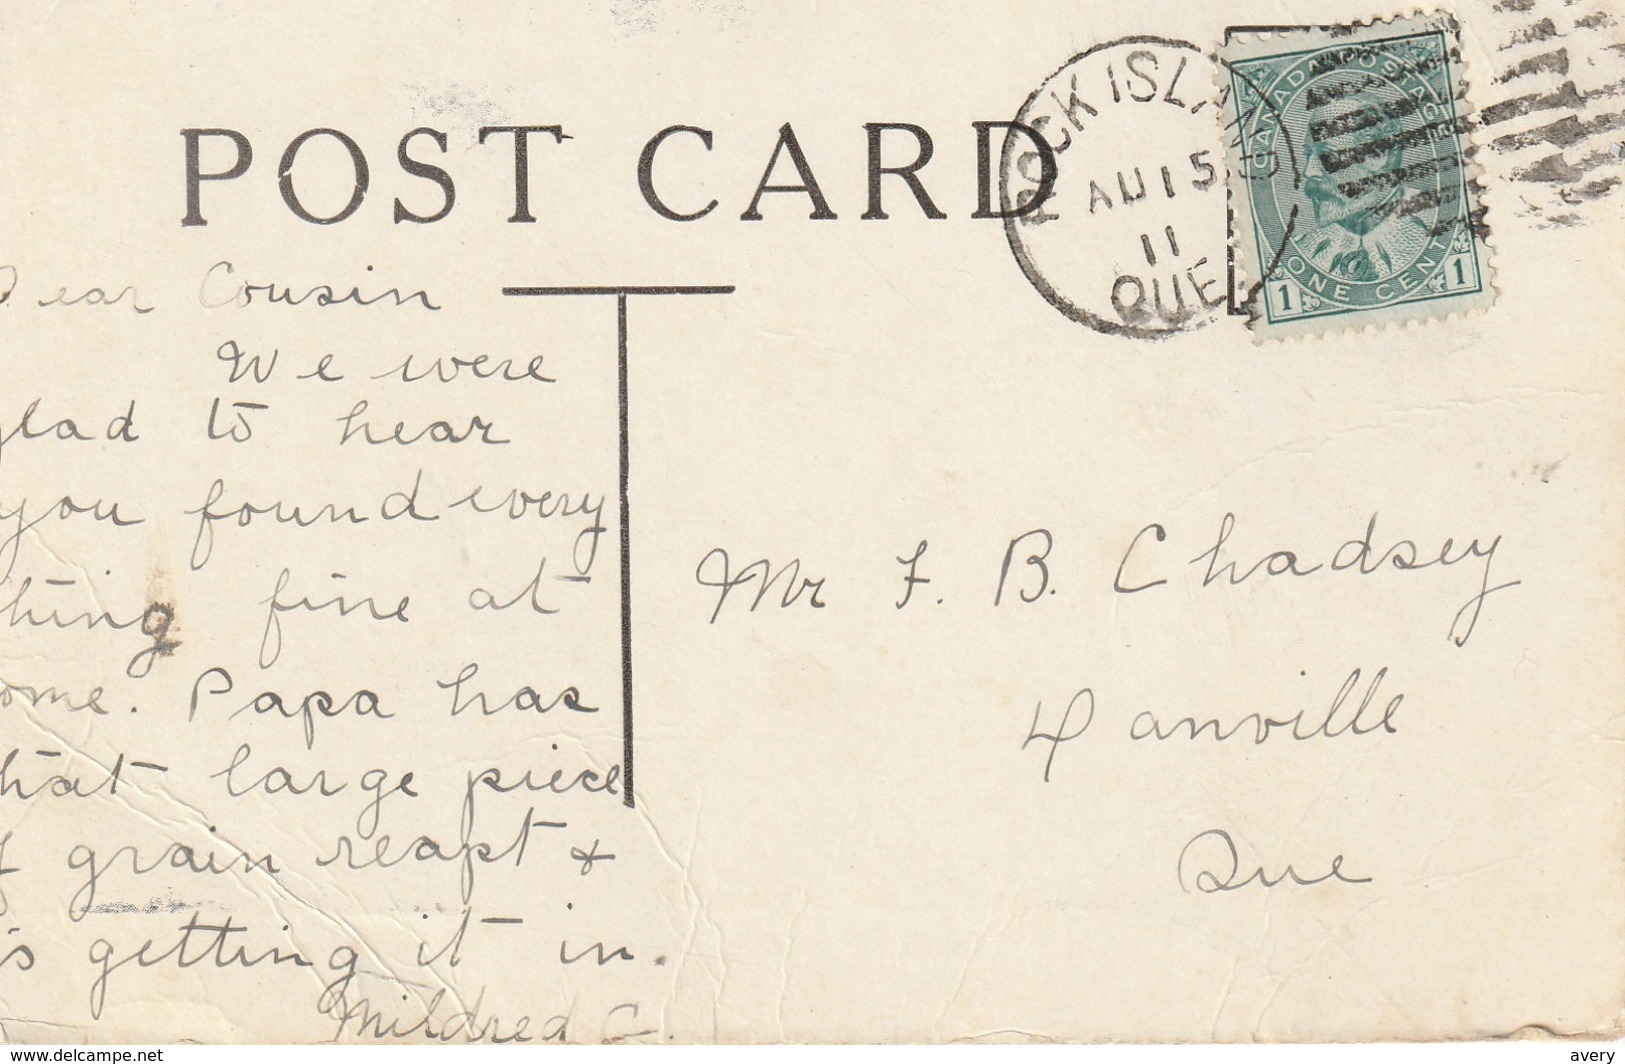 POST CARD
ROCK ISLAND
AU 15
11
QUE
CANADA POSTAGE
ONE CENT
1 1
Dear Cousin
We were
glad to hear
you found every
thing fine at
ome. Papa has
that large piece
f grain reapt &
is getting it in.
Mildred C.
Mr F. B. Chadsey
Danville
Que
www.delcampe.net
avery